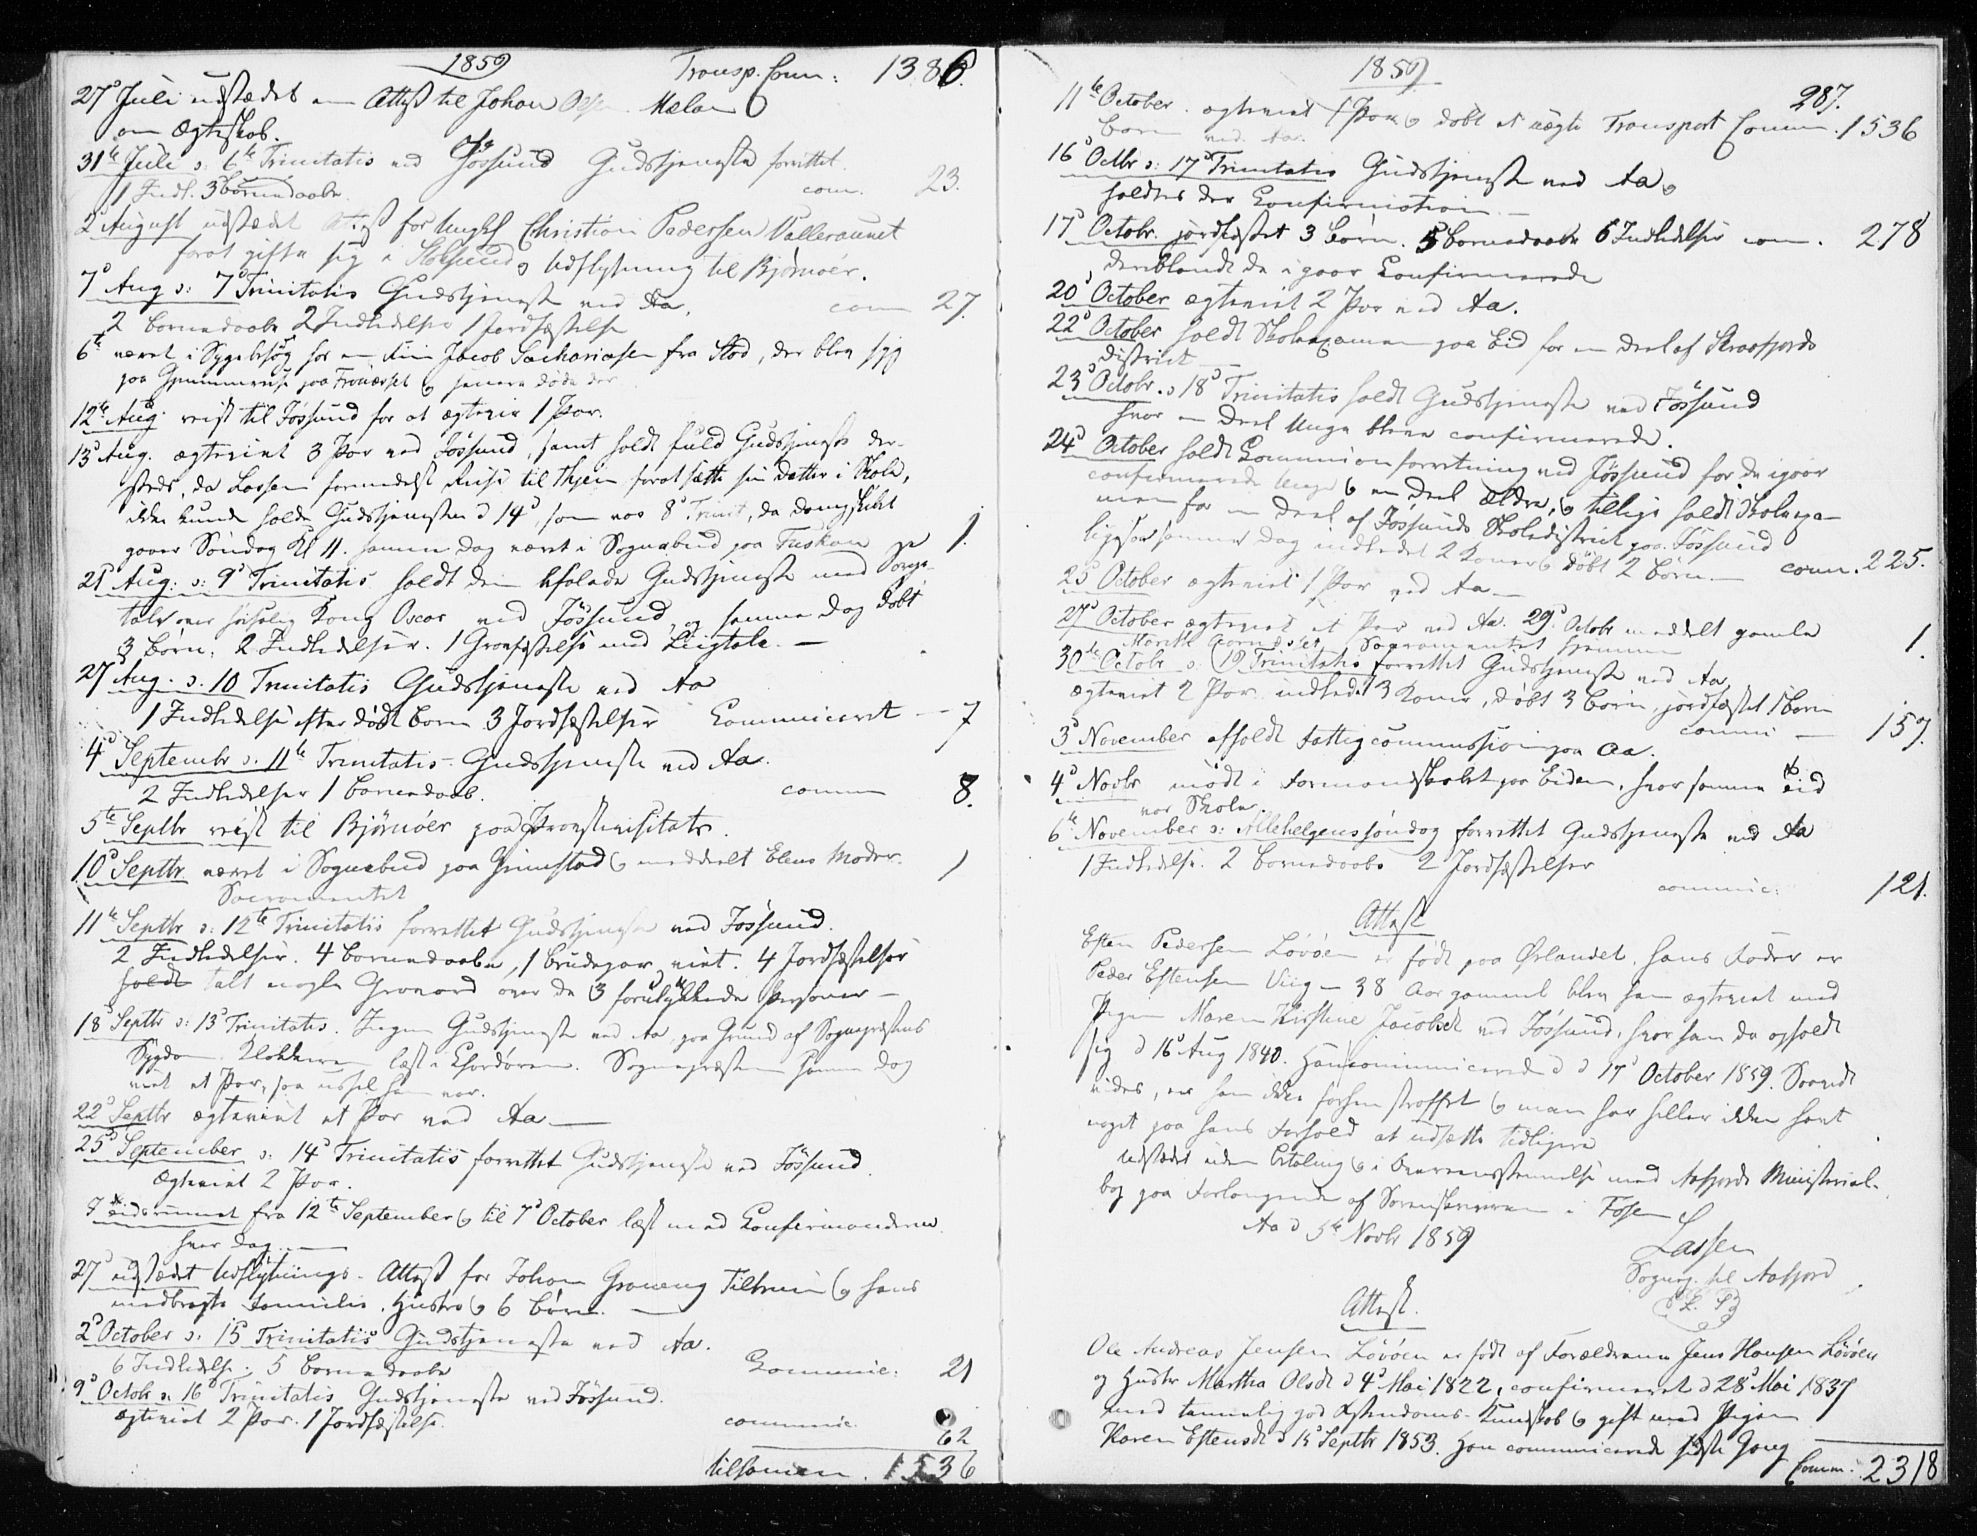 1859 Transp. Comm: 1386.
27d Juli udstædet en Attest til Johan Melan
om Ægteskab.
31te Juli s: 6te Trinitatis ved Jøssund Gudstjeneste forrettet.
1 Indl. 3 Barnedaabe com. 23.
2 August udstædet Attest for Ungkl Christian Pedersen Valleraunet
forat gifte sig i Udflytning til Bjørnøer.
7d Aug s: 7d Trinitatis Gudstjeneste ved Aa, com 27.
2 Barnedaabe 2 Indledelse 1 Jordfæstelse
6te været i Sygebesøg hos en Jacob Sachariasen fra Stod, der blev syg
paa og senere døde der
12te Aug reist til Jøssund for at ægtevie 1 Par.
13d Aug. ægteviet 3 Par ved Jøssund, samt holdt fuld Gudstjeneste der-
steds, da Lassen formedelst Reise til Thjem forat sætte sin Datter i Skole,
ikke kunde holde Gudstjenesten d 14d, som var 8d Trinit, da Dampskibet
gaaer Søndag Kl 11. samme Dag været i Sognebud paa 1.
21 Aug: s: 9d Trinitatis holdt den befalede Gudstjeneste med Sørge-
tale over høisalig Kong Oscar ved Jøssund, og samme Dag døbt
3 Børn, 2 Indledelser. 1 Gravfæstelse med Liigtale. —
27 Aug. s. 10 Trinitatis Gudstjeneste ved Aa
1 Indledelse efter dødt Barn 3 Jordfæstelser Communiceret — 7
4d Septembr s. 11te Trinitatis - Gudstjeneste ved Aa.
2 Indledelser 1 Barnedaab. comm 8.
5te Septbr reist til Bjørnøer paa Provstevisitats.
10d Septbr. været i Sognebud paa Grimstad og meddeelt Elens Moder 1
Sacramentet
11te Septbr s: 12te Trinitatis forrettet Gudstjeneste ved Jøssund.
2 Indledelser. 4 Barnedaabe, 1 Brudepar viet. 4 Jordfæstelser
holdt talt nogle Gravord over de 3 forulykkede Personer —
18d Septbr s: 13d Trinitatis. Ingen Gudstjeneste ved Aa paa Grund af Sognepræstens
Sygdom. Klokkeren læst i Chordøren. Sognepræsten samme Dag
viet et Par, saa ussel han var.
22d Septbr ægteviet et Par ved Aa —
25d September s: 14d Trinitatis forrettet Gudstjeneste ved Jøssund.
Ægteviet 2 Par.
I Tidsrummet fra 12te September og til 7d October læst med Confirmanderne
hver Dag. —
27d udstædet Udflytnings-Attest for Johan Graneng Tiltrem og hans
medbragte Familie. Hustru og 6 Børn. —
2d October s. 15 Trinitatis Gudstjeneste ved Aa.
6 Indledelse. 5 Barnedaabe Commic: 21
9d Octobr s. 16d Trinitatis Gudstjeneste ved Jøssund.
ægteviet 2 Par. 1 Jordfæstelse. commic. 62
tilsamen. 1536
1859 287.
11te October. ægteviet 1 Par og døbt et uægte Transport Comm. 1536
Barn ved Aa.
16d Octbr s: 17d Trinitatis Gudstjeneste ved Aa og
holdtes der Confirmation. —
17d Octobr. jordfæstet 3 Børn. 5 Barnedaabe 6 Indledelse com. 278
deriblandt de i gaar Confirmerede
20d October ægteviet 2 Par ved Aa.
22d October holdt Skoleexamen paa Eid for en Deel af Skraafjords
District
23d Octobr. s 18d Trinitatis holdt Gudstjeneste ved Jøssund
hvor en Deel Unge bleve confirmerede.
24d October holdt Communionforretning ved Jøssund for de igaar
confirmerede Unge og en Deel Ældre, og tillige holdt Skoleexa-
men for en Deel af Jøssunds Skoledistrict paa Jøssund
ligesaa samme Dag indledet 2 Koner og døbt 2 Børn. — comm. 225.
25d October ægteviet 1 Par ved Aa —
27d October ægteviet et Par ved Aa. 29d Octobr meddelt gamle
Sacramentet hjemme 1.
30te Octobr s. 19 Trinitatis forrettet Gudstjeneste ved Aa,
ægteviet 2 Par. indledet 3 Koner, døbt 3 Børn, jordfæstet 1 Barn
commi — 157.
3d November afholdt Fattigcommission paa Aa.
4d Novbr mødt i Formandskabet paa Eiden, hvor samme Tid
var Skole.
6te November s: Allehelgenssøndag forrettet Gudstjeneste ved Aa
1 Indledelse. 2 Barnedaabe 2 Jordfæstelser
commic: 121.
Attest
Esten Pedersen Løvøen er født paa Ørlandet, hans Fader er
Peder Estensen Viig — 38 Aar gammel blev han ægteviet med
Pigen Maren Kirstine Jacobsdt ved Jøssund, hvor han da opholdt
sig d 16d Aug 1840. Han communicerede d d 17d October 1859. Saavidt
vides, er han ikke forhen straffet og man har heller ikke havt
noget paa hans Forhold at udsætte tidligere
Udstædet uden Betaling og i Overensstemmelse med Aafjords Ministerial-
bog paa Forlangende af Sorenskriveren i Fosen
Aa d 5te Novbr 1859
Lassen
Sognep. til Aafjord
Attest.
Ole Andreas Jensen Løvøen er født af Forældrene Jens Hansen Løvøen
og Hustr Martha Olsdt d 4d Mai 1822, confirmeret d 28d Mai 1837
med temmelig god Christendoms-Kundskab og gift med Pigen
Karen Estensdt d 15d Septbr 1853. Han communicerede sidste Gang
Comm. 2318